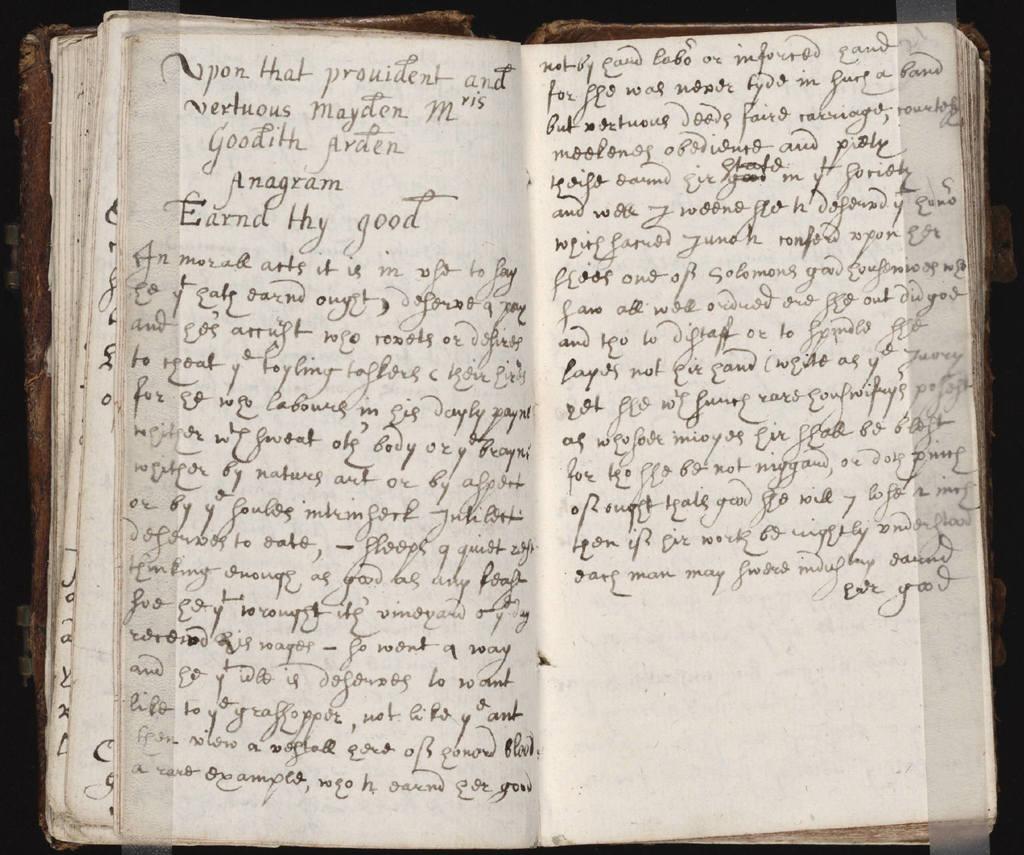 Vpon that prouident and
vertuous Mayden Mris
Goodith Arden
Anagram
Earnd thy good
In morall acts it is in vse to say
he yt hath earnd ought, deserue a pay
and he's accurst who couets or desires
to cheat ye toyling taskers (their hires
for he who labours in his dayly payne
whither wth sweat oth' body or ye brayne
whither by naturs art or by aspect
or by ye soules intrinseck Intilect
deserues to eate, – sleeps a quiet rest
thinking enough as good as any feast
soe he yt wrought ith' vineyard ye day
receiud his wages – so went a way
and he yt idle is deserues to want
like to ye grashopper, not like ye ant
then view a vestall here off honord blood
a rare example, who h earnd her good
not by hard labor or inforced hand
for shee was neuer tyde in such a band
but vertuous deeds faire carriage, courtesy
meekenes obedience and piety
theise earnd hir state good in yt society
and well I weene she h deserud ye honor
which sacred Junoh conferd vpon her
shees one off Solomons good housewiues who
saw all well ordred ere she out did goe
and tho to distaff or to spindle she
layes not hir hand (white as ye Iuory
yet she wth such rare houswifrys posest
as whosoer inioyes hir shall be blest
for tho she be not niggard, or doth pinch
off ought thats good she will I lose a inch
then iff hir worth be rightly vnderstood
each man may swere industry earnd
her good